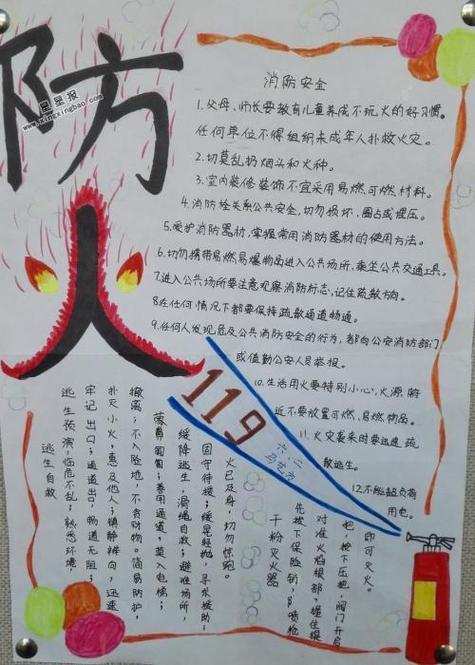 防火
星星报
www.xingxingbao.com
消防安全
1.父母,师长要教育儿童养成不玩火的好习惯。
任何单位不得组织未成年人扑救火灾。
2.切莫乱扔烟头和火种。
3.室内装修装饰不宜采用易燃可燃材料。
4.消防栓关系公共安全,切勿损坏、圈占或埋压。
5.爱护消防器材,掌握常用消防器材的使用方法。
6.切勿携带易燃易爆物品进入公共场所、乘坐公共交通工具。
7.进入公共场所要注意观察消防标志,记住疏散方向。
8.在任何情况下都要保持疏散通道畅通。
9.任何人发现危及公共消防安全的行为,都向公安消防部门
或值勤公安人员举报。
10.生活用火要特别小心,火源附
近不要放置可燃、易燃物品。
11.火灾袭来时要迅速疏
散逃生。
12.不能超负荷
用电。
119
六.二
逃生自救
逃生预演,临危不乱;熟悉环境,
牢记出口;通道出口,畅通无阻;
扑灭小火,惠及他人;镇静辨向,迅速
撤离;不入险地,不贪财物。简易防护,
蒙鼻匍匐;善用通道,莫入电梯;
缓降逃生,滑绳自救;避难场所,
固守待援;缓晃轻抛,寻求援助;
火已及身,切勿惊跑。
干粉灭火器
先拔下保险销,喷枪
对准火焰根部,握住提
把,按下压把,阀门开启
即可灭火。